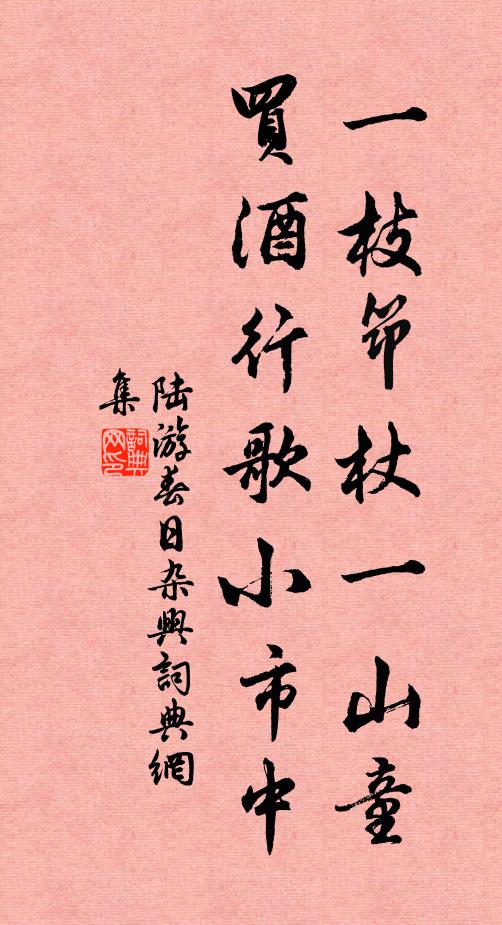 一枝筇杖一山童
買酒行歌小市中
陆游春日杂興詞典網
集
詞典
网印